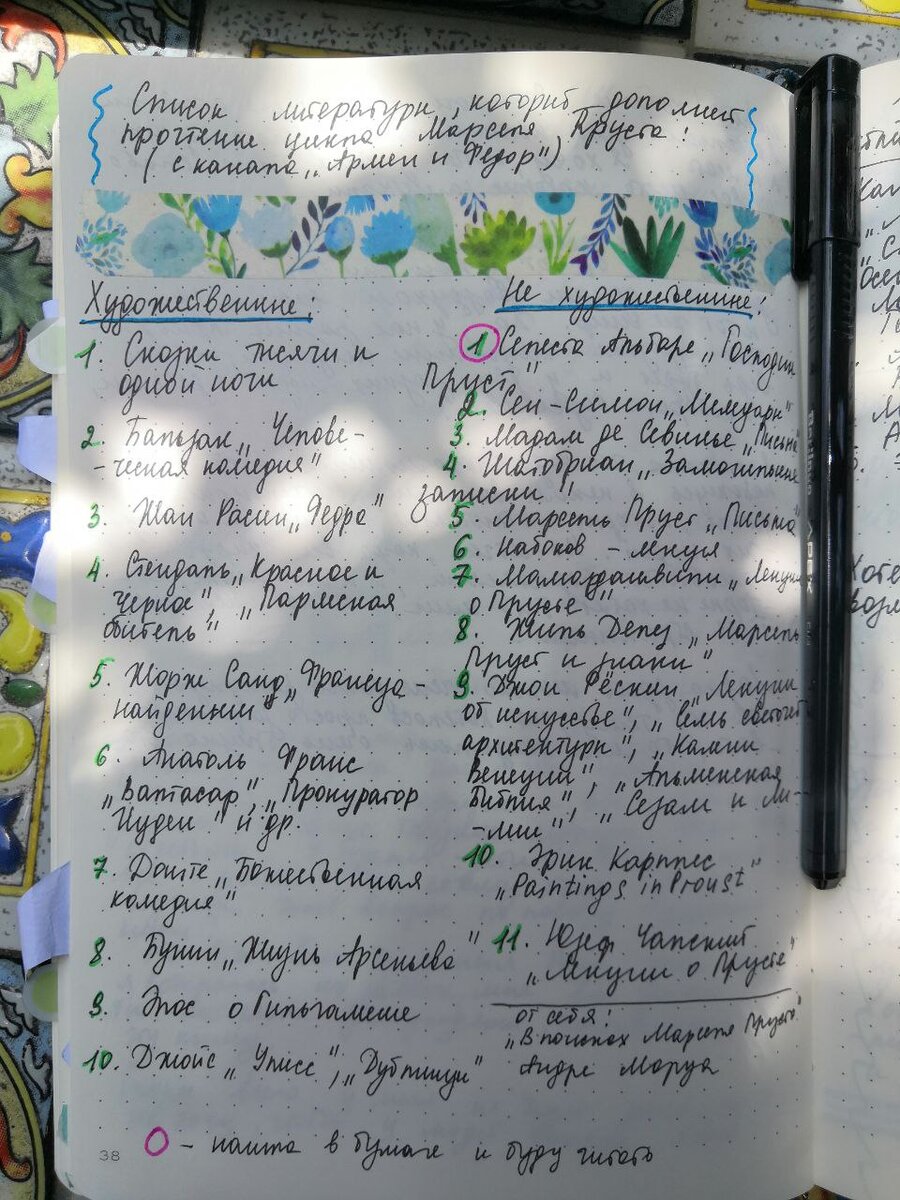 Список литературы, который дополнит
прочтение цикла Марселя Пруста:
(с канала „Армен и Федор")
Художественные:
1. Сказки тысячи и
одной ночи
2. Бальзак „Челове-
-ческая комедия"
3. Жан Расин „Федра"
4. Стендаль „Красное и
Черное", „Пармская
обитель"
5. Жорж Санд „Франсуа-
найденыш"
6. Анатоль Франс
„Валтасар", „Прокуратор
Иудеи" и др.
7. Данте „Божественная
комедия"
8. Бунин „Жизнь Арсеньева"
9. Эпос о Гильгамеше
10. Джойс „Улисс", „Дублинцы"
Не художественные:
1 Селеста Альбаре „Господин
Пруст"
2. Сен-Симон „Мемуары"
3. Мадам де Севинье „Письма"
4. Шатобриан „Замогильные
записки"
5. Марсель Пруст „Письма"
6. Набоков - лекция
7. Мамардашвили „Лекции
о Прусте"
8. Жиль Делез „Марсель
Пруст и знаки"
9. Джон Рёскин „Лекции
от искусстве", „Семь светочей
архитектуры", „Камни
Венеции", „Амьенская
Библия", „Сезам и ли-
-лии"
10. Эрик Карплес
„Paintings in Proust"
11. Юзеф Чапский
„Лекции о Прусте"
от себя:
„В поисках Марселя Пруста"
Андре Моруа
О - нашла в бумаге и буду читать
38